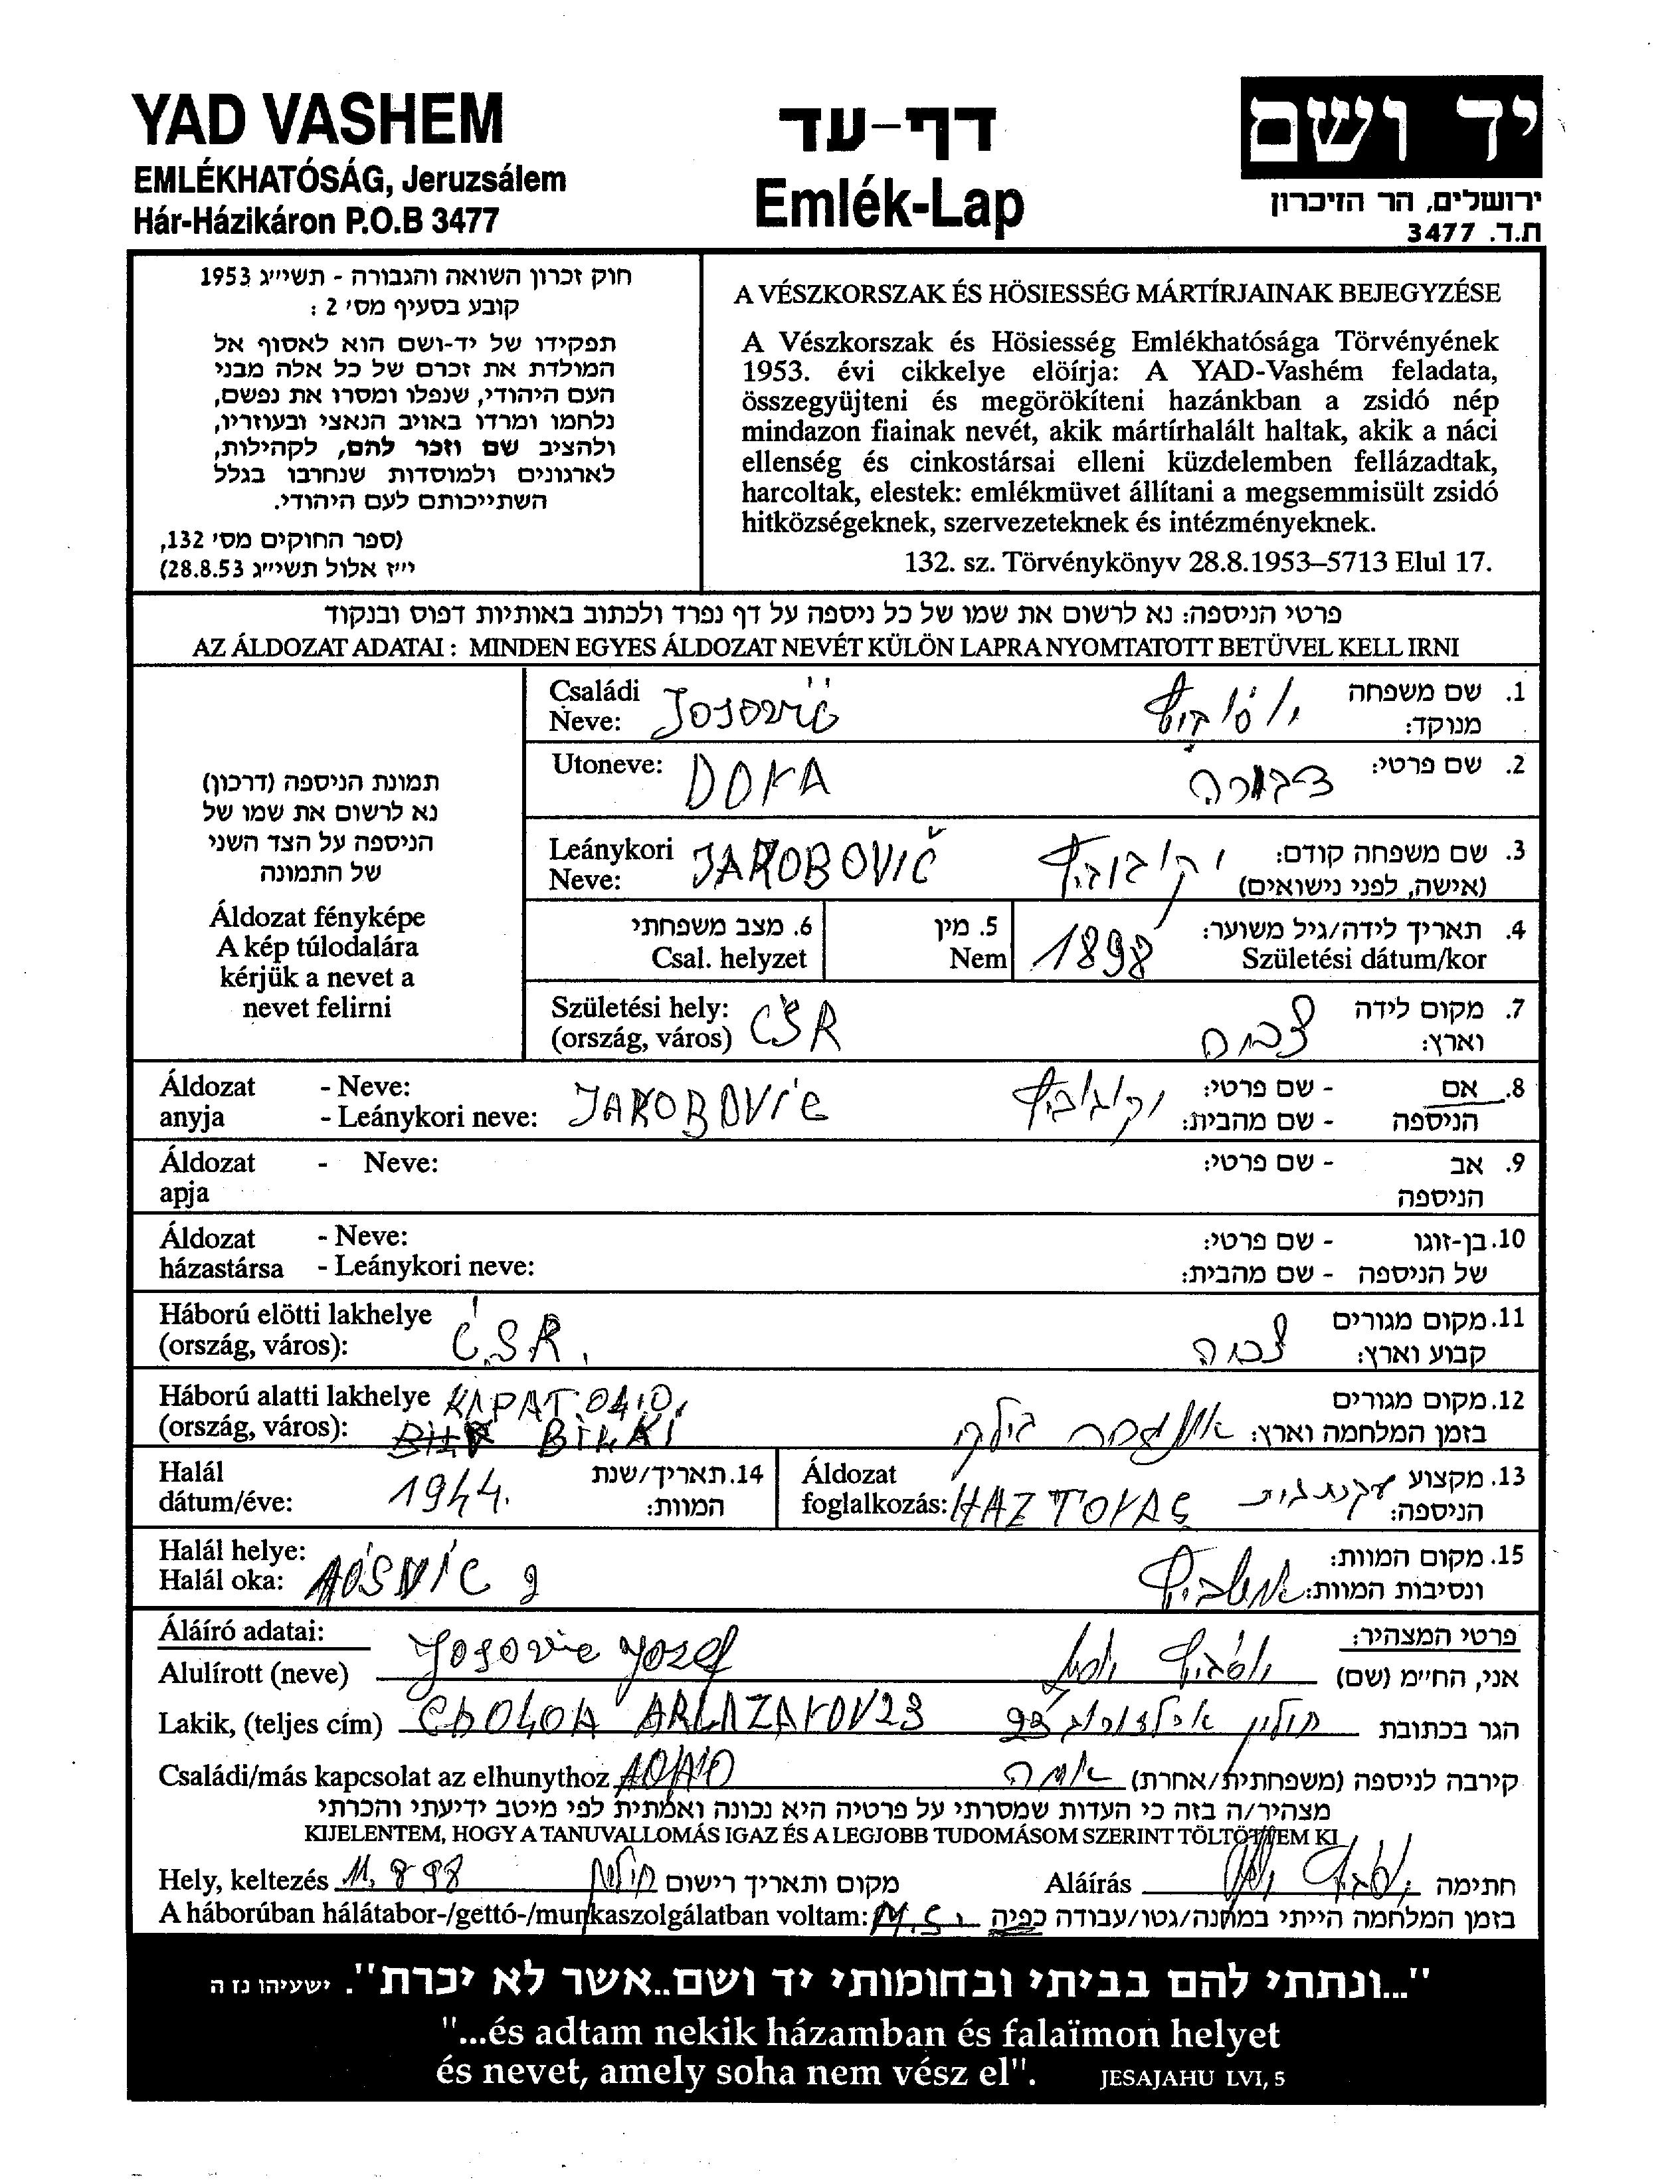 YAD VASHEM
EMLÉKHATÓSÁG, Jeruzsálem
Hár-Házikáron P.O.B 3477
דף-עד
Emlék-Lap
יד ושם
ירושלים, הר הזיכרון
ת.ד. 3477
חוק זכרון השואה והגבורה - תשי״ג 1953
קובע בסעיף מס׳ 2 :
תפקידו של יד-ושם הוא לאסוף אל
המולדת את זכרם של כל אלה מבני
העם היהודי, שנפלו ומסרו את נפשם,
נלחמו ומרדו באויב הנאצי ובעוזריו,
ולהציב שם וזכר להם, לקהילות,
לארגונים ולמוסדות שנחרבו בגלל
השתייכותם לעם היהודי.
(ספר החוקים מס׳ 132,
י״ז אלול תשי״ג 28.8.53)
A VÉSZKORSZAK ÉS HÖSIESSÉG MÁRTÍRJAINAK BEJEGYZÉSE
A Vészkorszak és Hösiesség Emlékhatósága Törvényének
1953. évi cikkelye elöírja: A YAD-Vashém feladata,
összegyüjteni és megörökíteni hazánkban a zsidó nép
mindazon fiainak nevét, akik mártírhalált haltak, akik a náci
ellenség és cinkostársai elleni küzdelemben fellázadtak,
harcoltak, elestek: emlékmüvet állítani a megsemmisült zsidó
hitközségeknek, szervezeteknek és intézményeknek.
132. sz. Törvénykönyv 28.8.1953–5713 Elul 17.
פרטי הניספה: נא לרשום את שמו של כל ניספה על דף נפרד ולכתוב באותיות דפוס ובנקוד
AZ ÁLDOZAT ADATAI : MINDEN EGYES ÁLDOZAT NEVÉT KÜLÖN LAPRA NYOMTATOTT BETÜVEL KELL IRNI
תמונת הניספה (דרכון)
נא לרשום את שמו של
הניספה על הצד השני
של התמונה
Áldozat fényképe
A kép túlodalára
kérjük a nevet a
nevet felirni
Családi Josovič 1. שם משפחה
Neve: מנוקד:
Utoneve: DORA דבורה 2. שם פרטי:
Leánykori JAKOBOVIČ יקובוביץ 3. שם משפחה קודם:
Neve: (אישה, לפני נישואים)
6. מצב משפחתי 5. מין 1898 4. תאריך לידה/גיל משוער:
Csal. helyzet Nem Születési dátum/kor
Születési hely: ČSR צ׳כיה 7. מקום לידה
(ország, város) וארץ:
Áldozat - Neve: - שם פרטי: 8. אם
anyja - Leánykori neve: JAKOBOVIC יקובוביץ - שם מהבית: הניספה
Áldozat - Neve: - שם פרטי: 9. אב
apja הניספה
Áldozat - Neve: - שם פרטי: 10. בן-זוגו
házastársa - Leánykori neve: - שם מהבית: של הניספה
Háború elötti lakhelye Č.S.R. 11. מקום מגורים
(ország, város): קבוע וארץ:
Háború alatti lakhelye 12. מקום מגורים
(ország, város): BILKI בילקי בזמן המלחמה וארץ:
Halál 1944. 14. תאריך/שנת
dátum/éve: המוות:
Áldozat 13. מקצוע
foglalkozás: הניספה:
Halál helye: 15. מקום המוות:
Halál oka: אושביץ ונסיבות המוות:
Áláíró adatai: פרטי המצהיר:
Alulírott (neve) Josovic Jozef אני, החי״מ (שם)
Lakik, (teljes cím) CHOLON ARLAZAROV 23 חולון הגר בכתובת
Családi/más kapcsolat az elhunythoz אמא קירבה לניספה (משפחתית/אחרת)
מצהיר/ה בזה כי העדות שמסרתי על פרטיה היא נכונה ואמתית לפי מיטב ידיעתי והכרתי
KIJELENTEM, HOGY A TANUVALLOMÁS IGAZ ÉS A LEGJOBB TUDOMÁSOM SZERINT TÖLTÖTTEM KI
Hely, keltezés 11.8.98 חולון מקום ותאריך רישום Aláírás חתימה
A háborúban hálátabor-/gettó-/munkaszolgálatban voltam: בזמן המלחמה הייתי במחנה/גטו/עבודה כפיה
"...ונתתי להם בביתי ובחומותי יד ושם..אשר לא יכרת". ישעיהו נז ה
"...és adtam nekik házamban és falaïmon helyet
és nevet, amely soha nem vész el". JESAJAHU LVI, 5